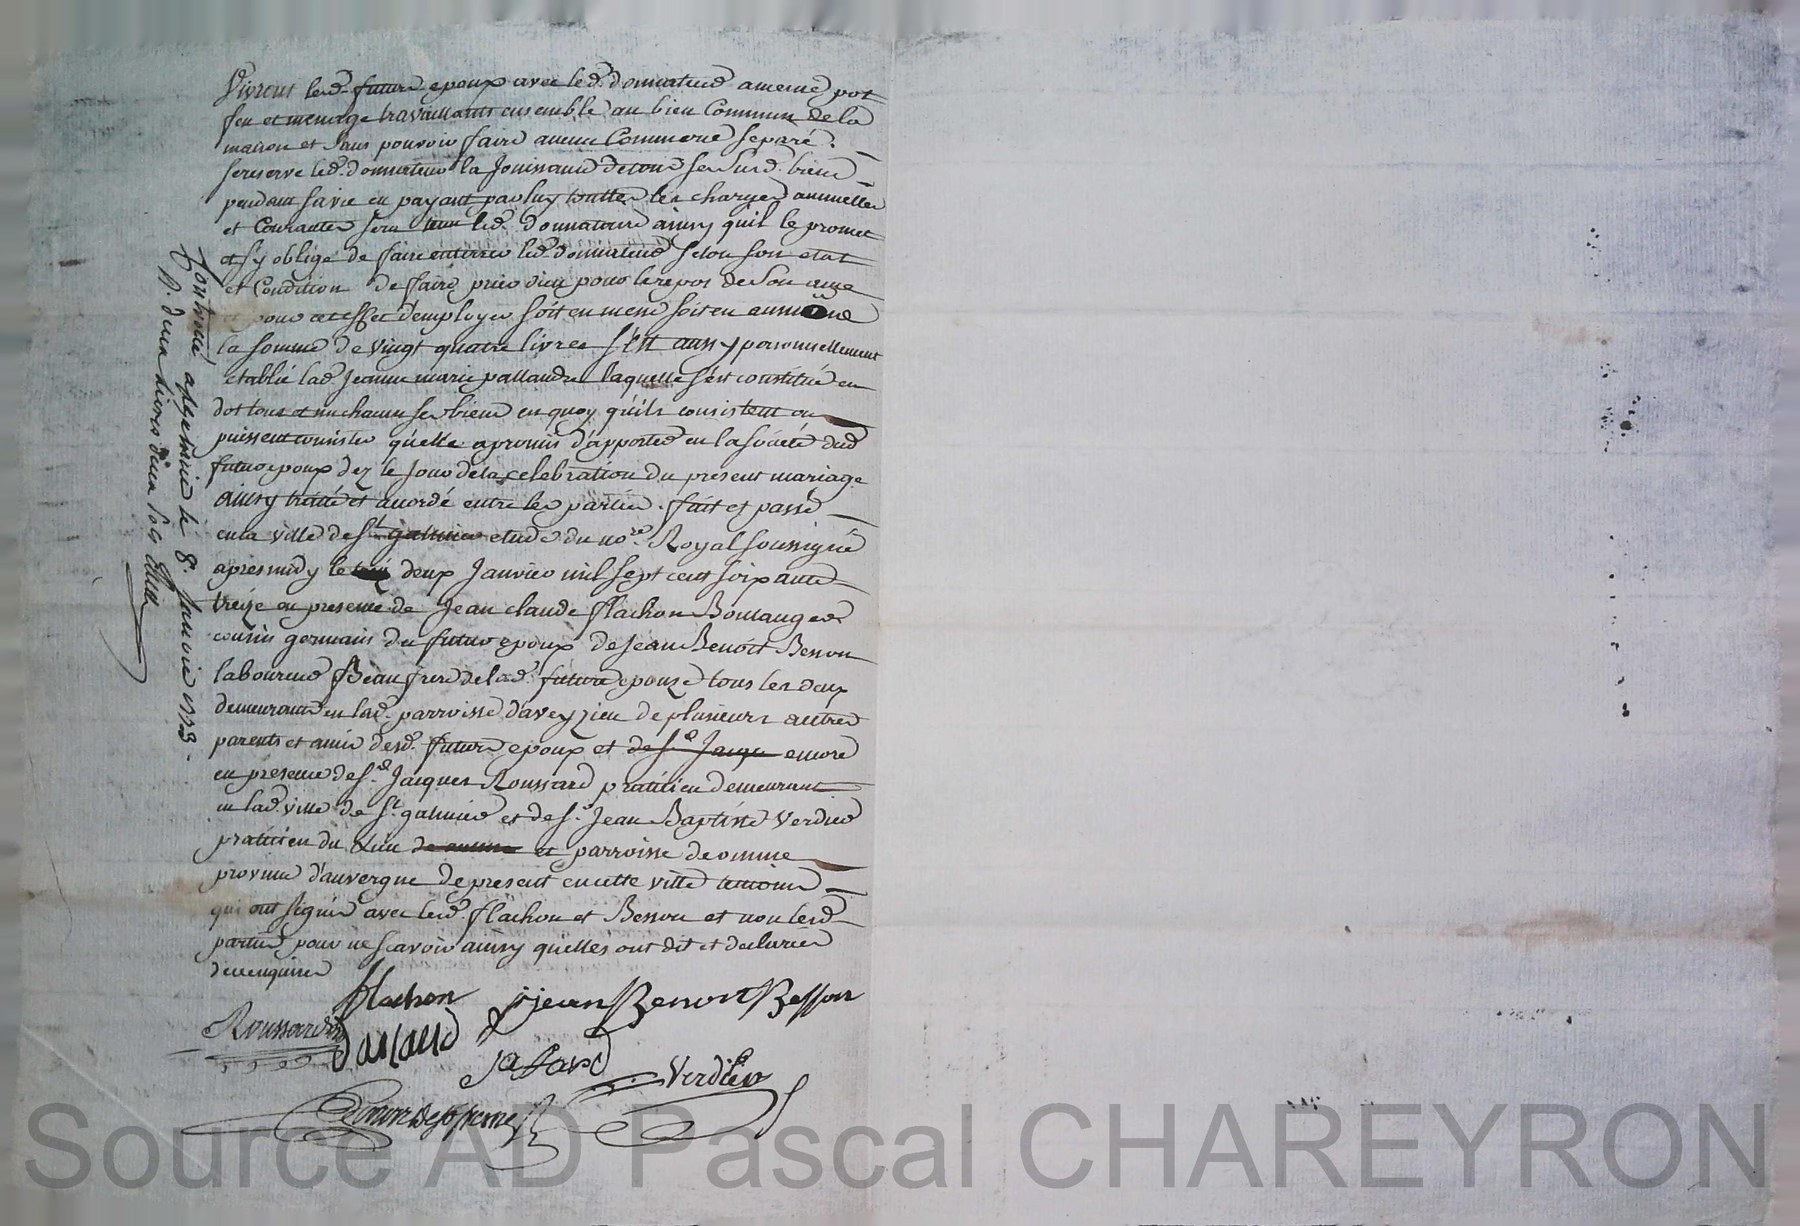 Vivront lesd. futurs epoux avec led. donnateur a meme pot
feu et menage travaillants ensemble au bien Commun de la
maison et sans pouvoir faire aucun Commerce separé.
se reserve led. donnateur la Jouissance de tous ses susd. biens
pendant sa vie en payant par luy touttes les charges annuelles
et Courantes sera tenu led. donnataire ainsy quil le promet
et s'y oblige de faire enterrer led. donnateur selon son etat
et Condition de faire prier dieu pour le repos de Son ame
pour cet effet d'employer soit en messe soit en aumone
la somme de vingt quatre livres s'est aussy personnellement
etablie lad. Jeanne marie pallandre laquelle s'est constitué en
dot tous et un chacun ses biens en quoy qu'ils consistent ou
puissent consister qu'elle a promis d'apporter en la societé dud
futur epoux dez le Jour de la celebration du present mariage
ainsy traité et accordé entre les parties. fait et passé
en la ville de St. galmier etude du nore. Royal soussigné
apres midy le deux Janvier mil sept cent soixante
treize en presence de Jean claude flachon Boulanger
cousin germain du futur epoux de Jean Benoit Besson
laboureur Beau frere de lad. future epouze tous les deux
demeurants en lad. parroisse d'aveyzieu de plusieurs autres
parents et amis desd. futurs epoux et de sr. Jacque encore
en presence de sr. Jacques Roussard praticien demeurant
en lad. ville de St. galmier et de sr. Jean Baptiste Verdier
praticien du lieu et parroisse de omme
province d'auvergne de present en cette ville temoins
qui ont signés avec lesd. flachon et Besson et non lesd
parties pour ne scavoir ainsy quelles ont dit et declarées
de ce enquises
flachon jean Benoit Besson
Roussard
Verdier
Controlé a St galmier le 8. Janvier 1773.